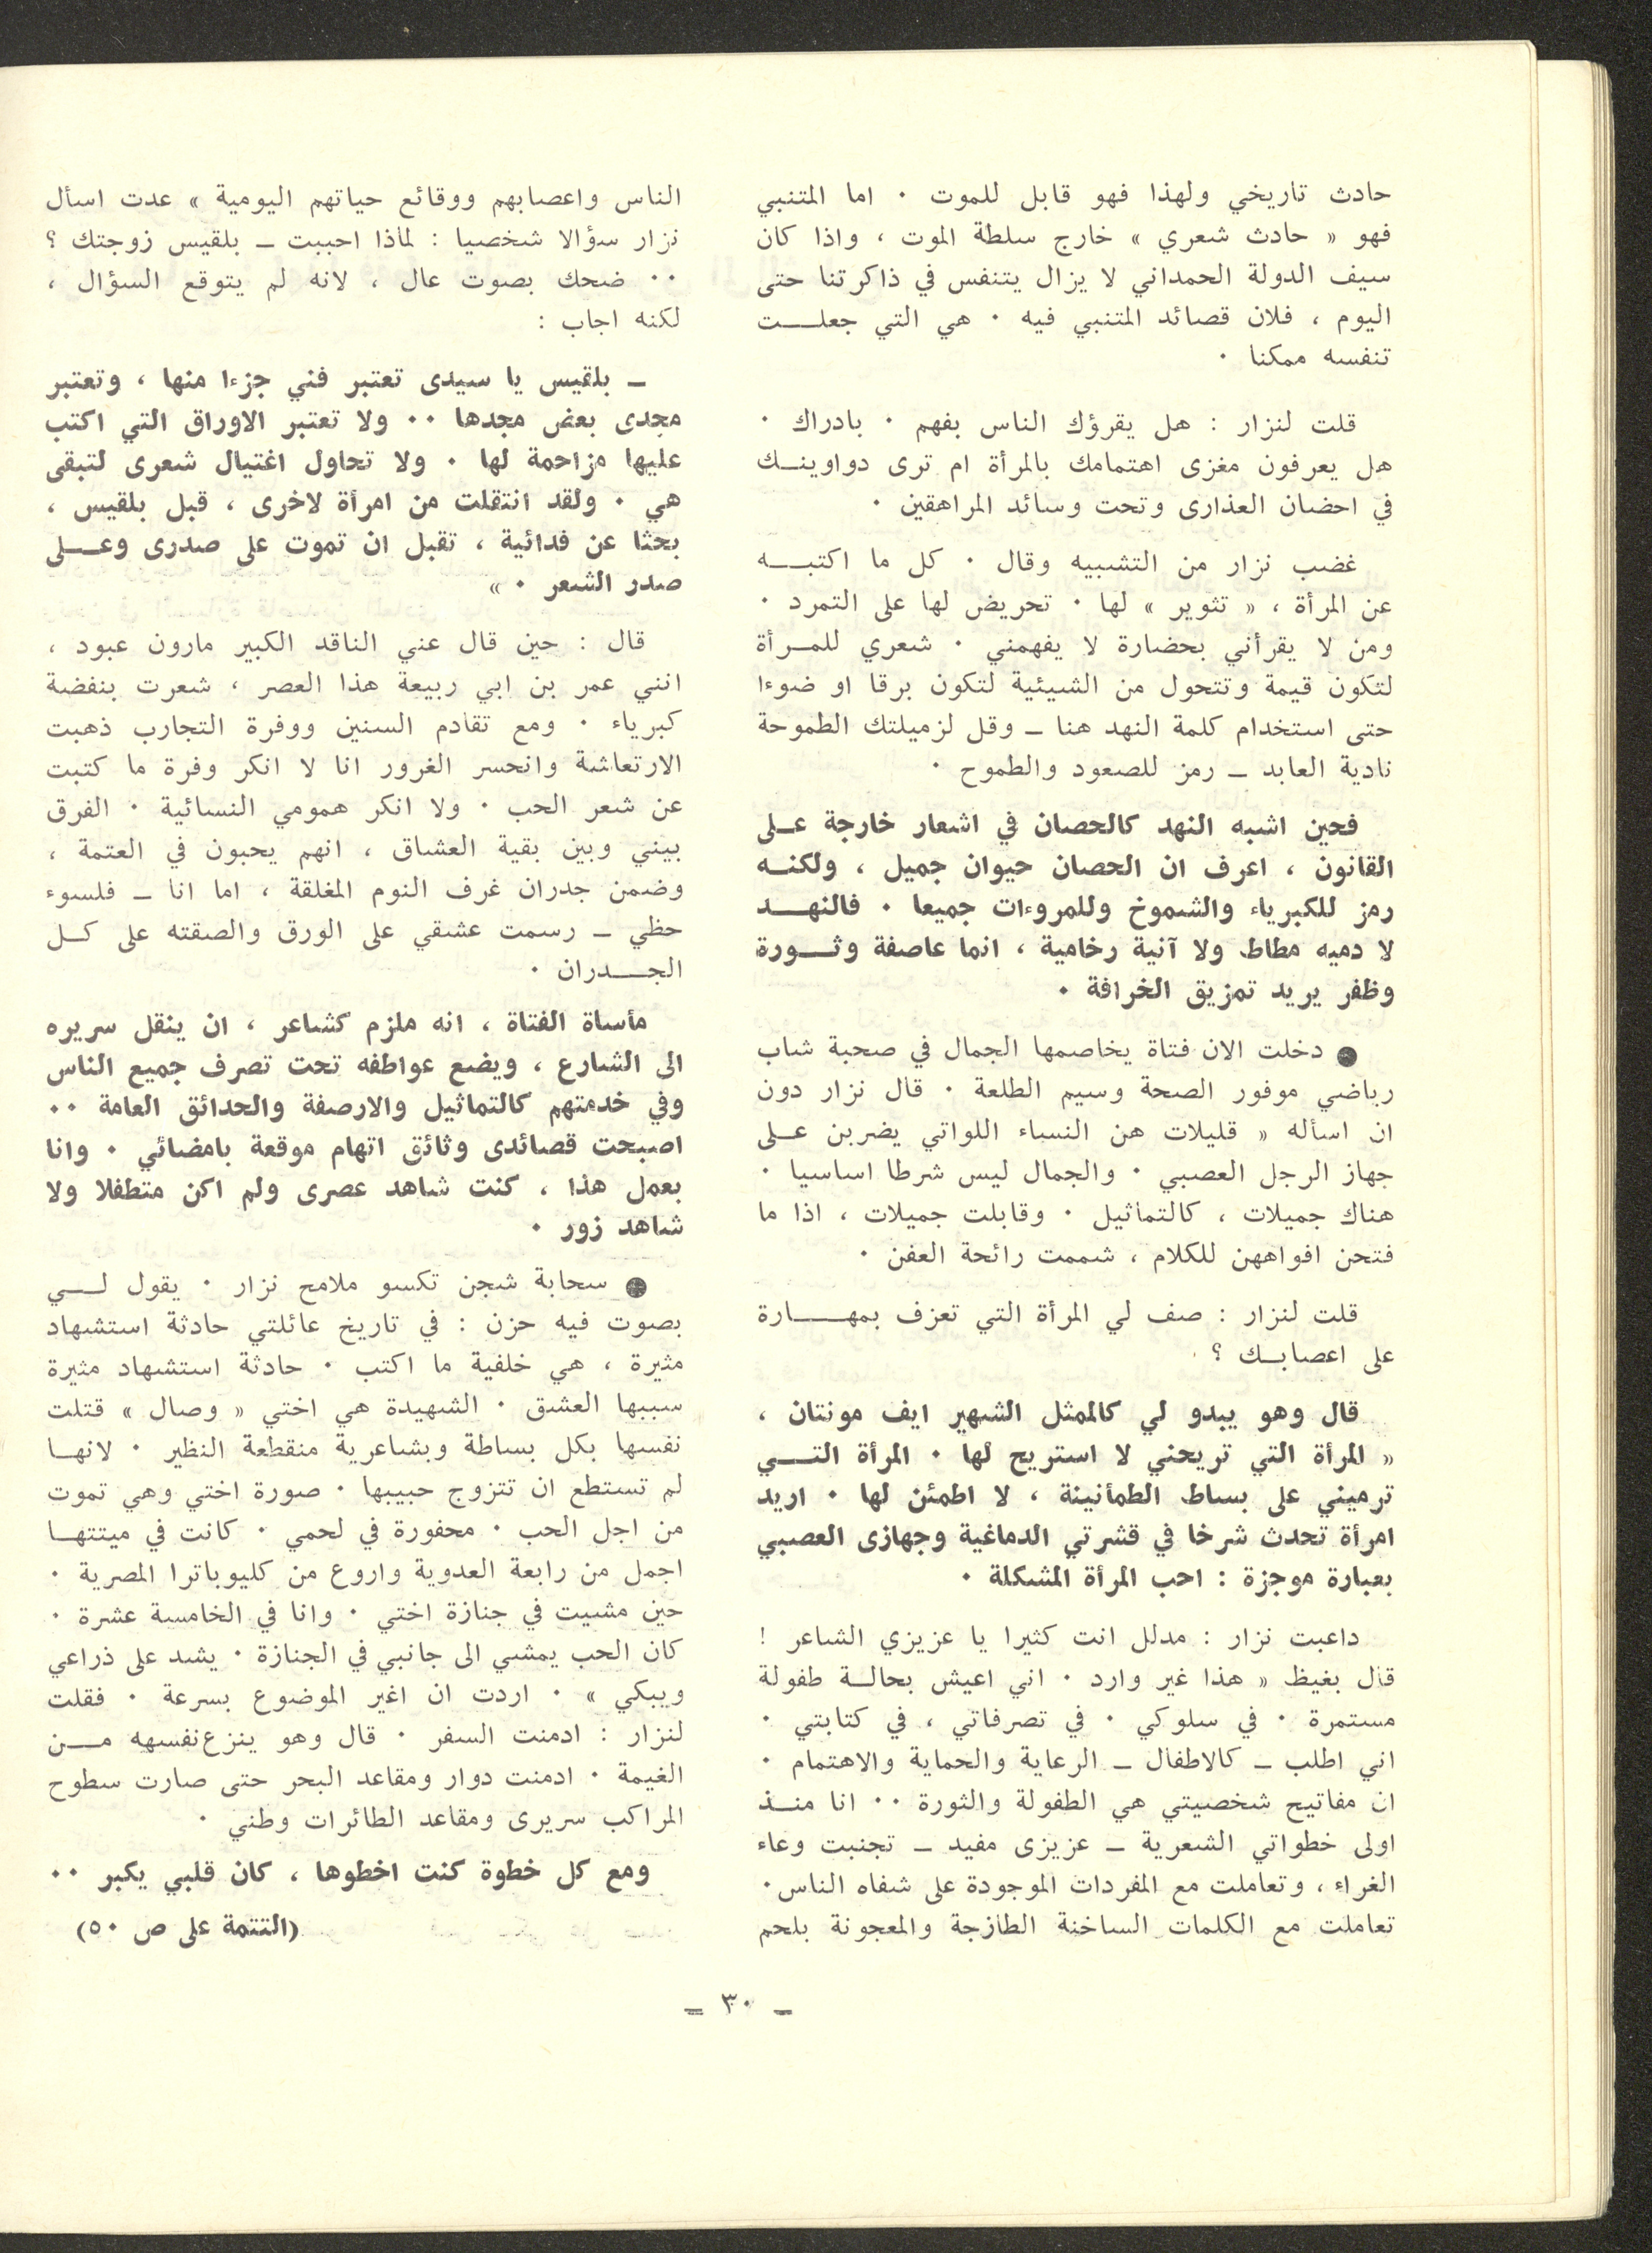 حادث تاريخي ولهذا فهو قابل للموت ٠ اما المتنبي
فهو « حادث شعري » خارج سلطة الموت ، واذا كان
سيف الدولة الحمداني لا يزال يتنفس في ذاكرتنا حتى
اليوم ، فلان قصائد المتنبي فيه ٠ هي التي جعلــت
تنفسه ممكنا ٠
قلت لنزار : هل يقرؤك الناس بفهم ٠ بادراك ٠
هل يعرفون مغزى اهتمامك بالمرأة ام ترى دواوينـك
في احضان العذارى وتحت وسائد المراهقين ٠
غضب نزار من التشبيه وقال ٠ كل ما اكتبــه
عن المرأة ، « تثوير » لها ٠ تحريض لها على التمرد ٠
ومن لا يقرأني بحضارة لا يفهمني ٠ شعري للمـرأة
لتكون قيمة وتتحول من الشيئية لتكون برقا او ضوءا
حتى استخدام كلمة النهد هنا ــ وقل لزميلتك الطموحة
نادية العابد ــ رمز للصعود والطموح ٠
فحين اشبه النهد كالحصان في اشعار خارجة عـلى
القانون ، اعرف ان الحصان حيوان جميل ، ولكنـه
رمز للكبرياء والشموخ وللمروءات جميعا ٠ فالنهــد
لا دميه مطاط ولا آنية رخامية ، انما عاصفة وثــورة
وظفر يريد تمزيق الخرافة ٠
● دخلت الان فتاة يخاصمها الجمال في صحبة شاب
رياضي موفور الصحة وسيم الطلعة ٠ قال نزار دون
ان اسأله « قليلات هن النساء اللواتي يضربن عـلى
جهاز الرجل العصبي ٠ والجمال ليس شرطا اساسيا ٠
هناك جميلات ، كالتماثيل ٠ وقابلت جميلات ، اذا ما
فتحن افواههن للكلام ، شممت رائحة العفن ٠
قلت لنزار : صف لي المرأة التي تعزف بمهــارة
على اعصابـك ؟
قال وهو يبدو لي كالممثل الشهير ايف مونتان ،
« المرأة التي تريحني لا استريح لها ٠ المرأة التــي
ترميني على بساط الطمأنينة ، لا اطمئن لها ٠ اريد
امرأة تحدث شرخا في قشرتي الدماغية وجهازى العصبي
بعبارة موجزة : احب المرأة المشكلة ٠
داعبت نزار : مدلل انت كثيرا يا عزيزي الشاعر !
قال بغيظ « هذا غير وارد ٠ اني اعيش بحالـة طفولة
مستمرة ٠ في سلوكي ٠ في تصرفاتي ، في كتابتي ٠
اني اطلب ــ كالاطفال ــ الرعاية والحماية والاهتمام ٠
ان مفاتيح شخصيتي هي الطفولة والثورة ٠٠ انا منـذ
اولى خطواتي الشعرية ــ عزيزى مفيد ــ تجنبت وعاء
الغراء ، وتعاملت مع المفردات الموجودة على شفاه الناس ٠
تعاملت مع الكلمات الساخنة الطازجة والمعجونة بلحم
الناس واعصابهم ووقائع حياتهم اليومية » عدت اسأل
نزار سؤالا شخصيا : لماذا احببت ــ بلقيس زوجتك ؟
٠٠ ضحك بصوت عال ، لانه لم يتوقع السؤال ،
لكنه اجاب :
ــ بلقيس يا سيدى تعتبر فني جزءا منها ، وتعتبر
مجدى بعض مجدها ٠٠ ولا تعتبر الاوراق التي اكتب
عليها مزاحمة لها ٠ ولا تحاول اغتيال شعرى لتبقى
هي ٠ ولقد انتقلت من امرأة لاخرى ، قبل بلقيس ،
بحثا عن فدائية ، تقبل ان تموت على صدرى وعــلى
صدر الشعر ٠ »
قال : حين قال عني الناقد الكبير مارون عبود ،
انني عمر بن ابي ربيعة هذا العصر ، شعرت بنفضة
كبرياء ٠ ومع تقادم السنين ووفرة التجارب ذهبت
الارتعاشة وانحسر الغرور انا لا انكر وفرة ما كتبت
عن شعر الحب ٠ ولا انكر همومي النسائية ٠ الفرق
بيني وبين بقية العشاق ، انهم يحبون في العتمة ،
وضمن جدران غرف النوم المغلقة ، اما انا ــ فلسوء
حظي ــ رسمت عشقي على الورق والصقته على كـل
الجــدران ٠
مأساة الفتاة ، انه ملزم كشاعر ، ان ينقل سريره
الى الشارع ، ويضع عواطفه تحت تصرف جميع الناس
وفي خدمتهم كالتماثيل والارصفة والحدائق العامة ٠٠
اصبحت قصائدى وثائق اتهام موقعة بامضائي ٠ وانا
بعمل هذا ، كنت شاهد عصرى ولم اكن متطفلا ولا
شاهد زور ٠
● سحابة شجن تكسو ملامح نزار ٠ يقول لــي
بصوت فيه حزن : في تاريخ عائلتي حادثة استشهاد
مثيرة ، هي خلفية ما اكتب ٠ حادثة استشهاد مثيرة
سببها العشق ٠ الشهيدة هي اختي « وصال » قتلت
نفسها بكل بساطة وبشاعرية منقطعة النظير ٠ لانهـا
لم تستطع ان تتزوج حبيبها ٠ صورة اختي وهي تموت
من اجل الحب ٠ محفورة في لحمي ٠ كانت في ميتتهـا
اجمل من رابعة العدوية واروع من كليوباترا المصرية ٠
حين مشيت في جنازة اختي ٠ وانا في الخامسة عشرة ٠
كان الحب يمشي الى جانبي في الجنازة ٠ يشد على ذراعي
ويبكي » ٠ اردت ان اغير الموضوع بسرعة ٠ فقلت
لنزار : ادمنت السفر ٠ قال وهو ينزع نفسهه مــن
الغيمة ٠ ادمنت دوار ومقاعد البحر حتى صارت سطوح
المراكب سريرى ومقاعد الطائرات وطني ٠
ومع كل خطوة كنت اخطوها ، كان قلبي يكبر ٠٠
(التتمة على ص ٥٠)
ــ ٣٠ ــ